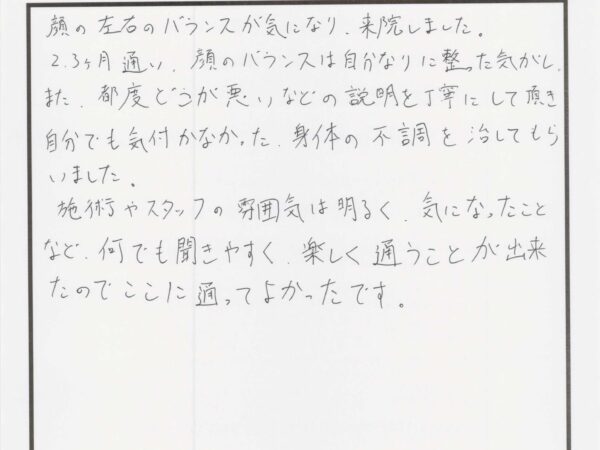 顔の左右のバランスが気になり、来院しました。
2.3ヶ月通い、顔のバランスは自分なりに整った気がし、
また、都度どこが悪いなどの説明を丁寧にして頂き
自分でも気付かなかった、身体の不調を治してもら
いました。
施術やスタッフの雰囲気は明るく、気になったこと
など、何でも聞きやすく、楽しく通うことが出来
たのでここに通ってよかったです。